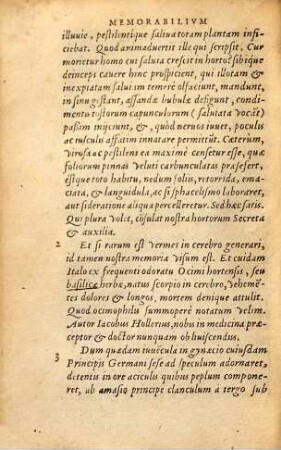 MEMORABILIVM
illuuie, pestilentique saliua totam plantam infi
ciebat. Quod animaduertit ille qui scripsit. Cur
moretur homo cui saluta crescit in horto? sibi que
deinceps cauere hinc prospicient, qui illotam &
inexpiatam salui in temerè olfaciunt, mandunt,
in sinu gistant, assandæ bubulæ defigunt, condi-
mento tostorum capunculorum (salutata vocāt)
passim mijciunt, &, quod neruos iuuet, poculis
ac iusculis affatim innatare permittūt. Cæterum,
virosa ac pestilens ea maximè censetur esse, quæ
foliorum pinnas veluti carbunculatas præsefert,
estque toto habitu, nedum folijs, retorrida, ema-
ciata, & languidula, ac si sphacelismo laboraret,
aut sideratione aliqua percelleretur. Sed hæc satis.
Qui plura volet, cōsulat nostra hortorum Secreta
& auxilia.
2 Et si rarum est vermes in cerebro generari,
id tamen nostra memoria visum est. Et cuidam
Italo ex frequenti odoratu Ocimi hortensis, seu
basilicæ herbæ, natus scorpio in cerebro, vehemē-
tes dolores & longos, mortem denique attulit.
Quod ocimophilis summoperè notatum velim.
Autor Iacobus Hollerius, nobis in medicina præ-
ceptor & doctor nunquam obliuiscendus.
3 Dum quædam iuuēcula in gynæcio cuiusdam
Principis Germani sese ad speculum adornaret,
detentis in ore aciculis quibus peplum compone-
ret, ab amasio principe clanculum à tergo sub